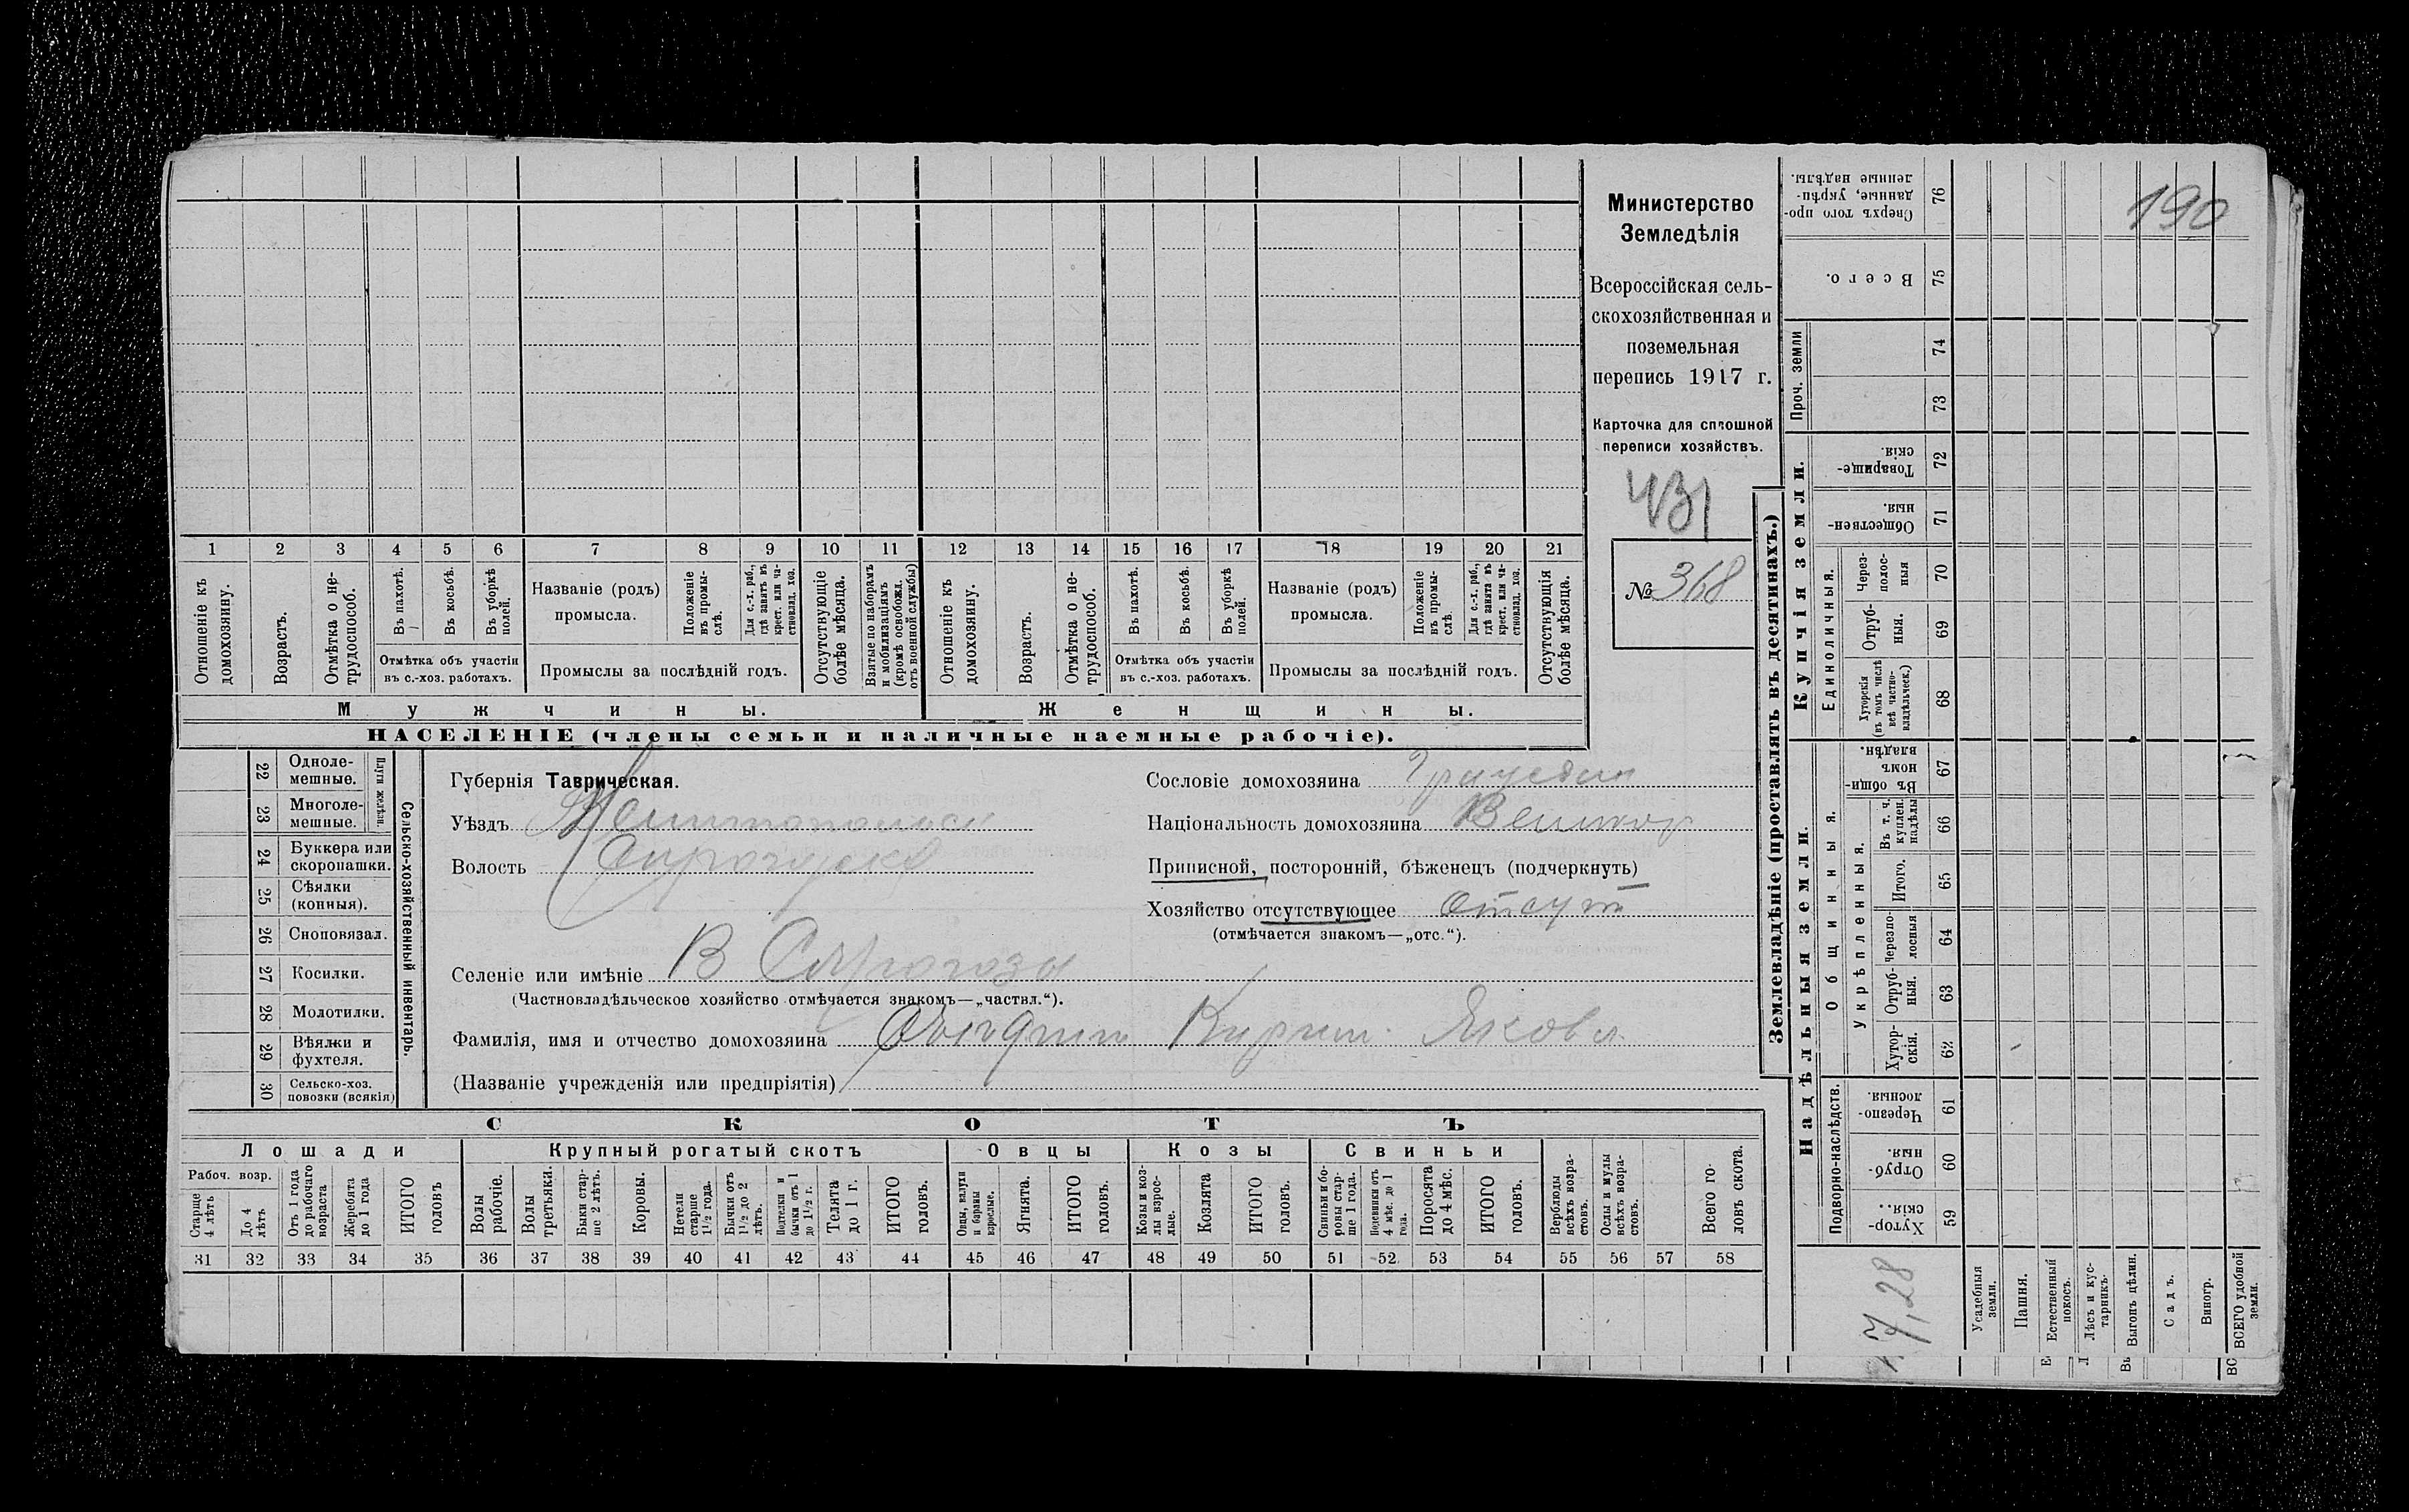 190
Министерство
Земледѣлія
Всероссійская сель-
скохозяйственная и
поземельная
перепись 1917 г.
Карточка для сплошной
переписи хозяйствъ.
431
№ 368
1 2 3 4 5 6 7 8 9 10 11 12 13 14 15 16 17 18 19 20 21
Отношеніе къ домохозяину.
Возрастъ.
Отмѣтка о не-трудоспособ.
Въ пахотѣ.
Въ косьбѣ.
Въ уборкѣ полей.
Отмѣтка объ участіи
въ с.-хоз. работахъ.
Названіе (родъ)
промысла.
Положеніе въ промы-слѣ.
Для с.-х. раб., гдѣ занятъ въ крест. или ча-стновлад. хоз.
Промыслы за послѣдній годъ.
Отсутствующіе болѣе мѣсяца.
Взятые по наборамъ и мобилизаціямъ (кромѣ освобожд. отъ военной службы)
Отношеніе къ домохозяину.
Возрастъ.
Отмѣтка о не-трудоспособ.
Въ пахотѣ.
Въ косьбѣ.
Въ уборкѣ полей.
Отмѣтка объ участіи
въ с.-хоз. работахъ.
Названіе (родъ)
промысла.
Положеніе въ промы-слѣ
Для с.-х. раб., гдѣ занята въ крест. или ча-стновлад. хоз.
Промыслы за послѣдній годъ.
Отсутствующія болѣе мѣсяца.
Мужчины.
Женщины.
НАСЕЛЕНІЕ (члены семьи и наличные наемные рабочіе).
22 Одноле-мешные.
23 Многоле-мешные.
Плуги желѣзн.
24 Буккера или скоропашки.
25 Сѣялки (конныя).
26 Сноповязал.
27 Косилки.
28 Молотилки.
29 Вѣялки и фухтеля.
30 Сельско-хоз. повозки (всякія)
Сельско-хозяйственный инвентарь.
Губернія Таврическая.
Уѣздъ
Волость
Селеніе или имѣніе В Сѣрогозы
(Частновладѣльческое хозяйство отмѣчается знакомъ—„частвл.“).
Фамилія, имя и отчество домохозяина Кирил. Яковл
(Названіе учрежденія или предпріятія)
Сословіе домохозяина
Національность домохозяина Великор
Приписной, посторонній, бѣженецъ (подчеркнуть)
Хозяйство отсутствующее Отсут
(отмѣчается знакомъ—„отс.“).
СКОТЪ
Лошади
Крупный рогатый скотъ
Овцы
Козы
Свиньи
Рабоч. возр.
Старше 4 лѣтъ
До 4 лѣтъ
Отъ 1 года до рабочаго возраста
Жеребята до 1 года
ИТОГО головъ
Волы рабочіе.
Волы третьяки.
Быки стар-ше 2 лѣтъ.
Коровы.
Нетели старше 1½ года.
Бычки отъ 1½ до 2 лѣтъ.
Подтелки и бычки отъ 1 до 1½ г.
Телята до 1 г.
ИТОГО головъ.
Овцы, валухи и бараны взрослые.
Ягнята.
ИТОГО головъ.
Козы и коз-лы взрос-лые.
Козлята
ИТОГО головъ.
Свиньи и бо-ровы стар-ше 1 года.
Подсвинки отъ 4 мѣс. до 1 года.
Поросята до 4 мѣс.
ИТОГО головъ.
Верблюды всѣхъ возра-стовъ.
Ослы и мулы всѣхъ возра-стовъ.
Всего го-ловъ скота.
31 32 33 34 35 36 37 38 39 40 41 42 43 44 45 46 47 48 49 50 51 52 53 54 55 56 57 58
Землевладѣніе (проставлять въ десятинахъ.)
Купчія земли.
Надѣльныя земли.
Сверхъ того про-данные, укрѣп-ленные надѣлы. 76
Всего. 75
Проч. земли 74 73
Товарище-скія. 72
Обществен-ныя. 71
Единоличныя.
Через-полос-ныя 70
Отруб-ныя. 69
Хуторскія (въ томъ числѣ всѣ частно-владѣльческ.) 68
Общинныя.
Въ общин-номъ владѣн. 67
Укрѣпленныя.
Въ т. ч. куплен. надѣлы 66
Итого. 65
Черезпо-лосныя 64
Отруб-ныя. 63
Хутор-скія. 62
Подворно-наслѣдств.
Черезпо-лосныя. 61
Отруб-ныя. 60
Хутор-скія. 59
Усадебныя земли.
Пашня.
Естественный покосъ.
Лѣсъ и кус-тарникъ.
Выгонъ цѣлин.
Садъ.
Виногр.
ВСЕГО удобной земли.